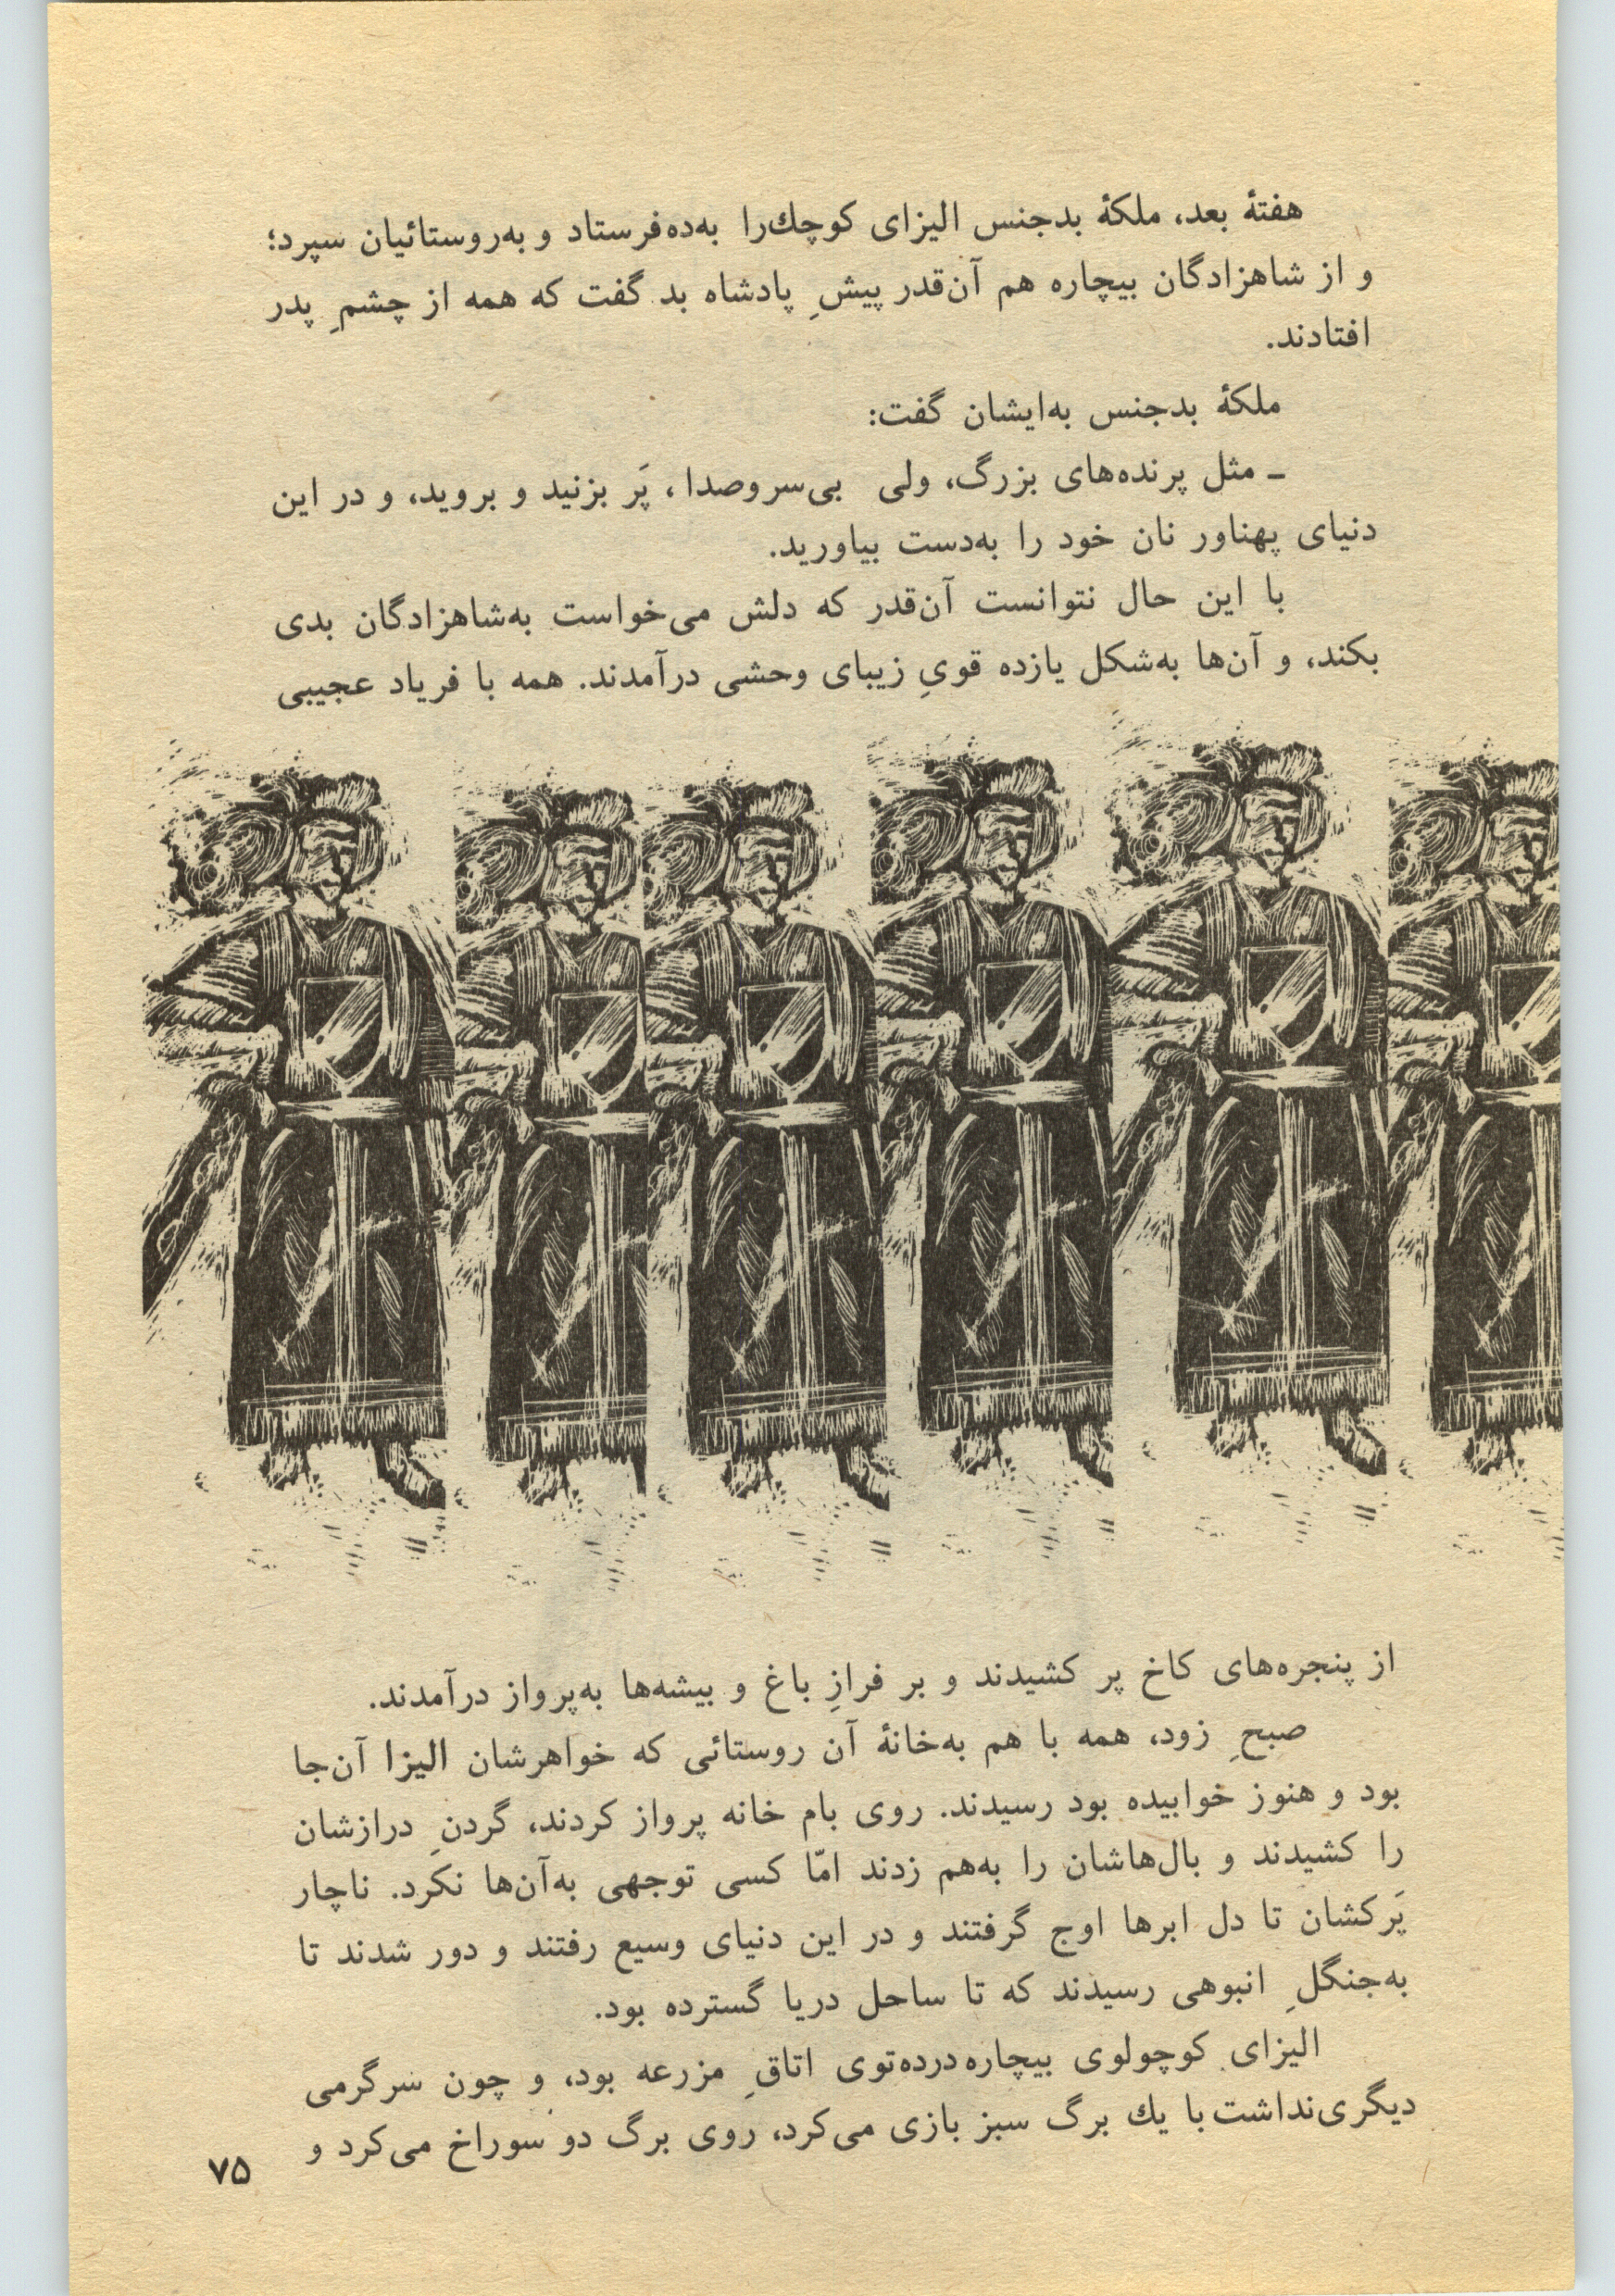 هفتهٔ بعد، ملکهٔ بدجنس الیزای کوچك‌را به‌ده‌فرستاد و به‌روستائیان سپرد؛
و از شاهزادگان بیچاره هم آن‌قدر پیشِ پادشاه بد گفت که همه از چشمِ پدر
افتادند.
ملکهٔ بدجنس به‌ایشان گفت:
ـ مثل پرنده‌های بزرگ، ولی بی‌سروصدا، پَر بزنید و بروید، و در این
دنیای پهناور نان خود را به‌دست بیاورید.
با این حال نتوانست آن‌قدر که دلش می‌خواست به‌شاهزادگان بدی
بکند، و آن‌ها به‌شکل یازده قویِ زیبای وحشی درآمدند. همه با فریاد عجیبی
از پنجره‌های کاخ پر کشیدند و بر فرازِ باغ و بیشه‌ها به‌پرواز درآمدند.
صبحِ زود، همه با هم به‌خانهٔ آن روستائی که خواهرشان الیزا آن‌جا
بود و هنوز خوابیده بود رسیدند. روی بام خانه پرواز کردند، گردنِ درازشان
را کشیدند و بال‌هاشان را به‌هم زدند امّا کسی توجهی به‌آن‌ها نکرد. ناچار
پَرکشان تا دل ابرها اوج گرفتند و در این دنیای وسیع رفتند و دور شدند تا
به‌جنگلِ انبوهی رسیدند که تا ساحل دریا گسترده بود.
الیزای کوچولوی بیچاره‌درده‌توی اتاقِ مزرعه بود، و چون سرگرمی
دیگری‌نداشت با یك برگ سبز بازی می‌کرد، روی برگ دو سوراخ می‌کرد و
۷۵